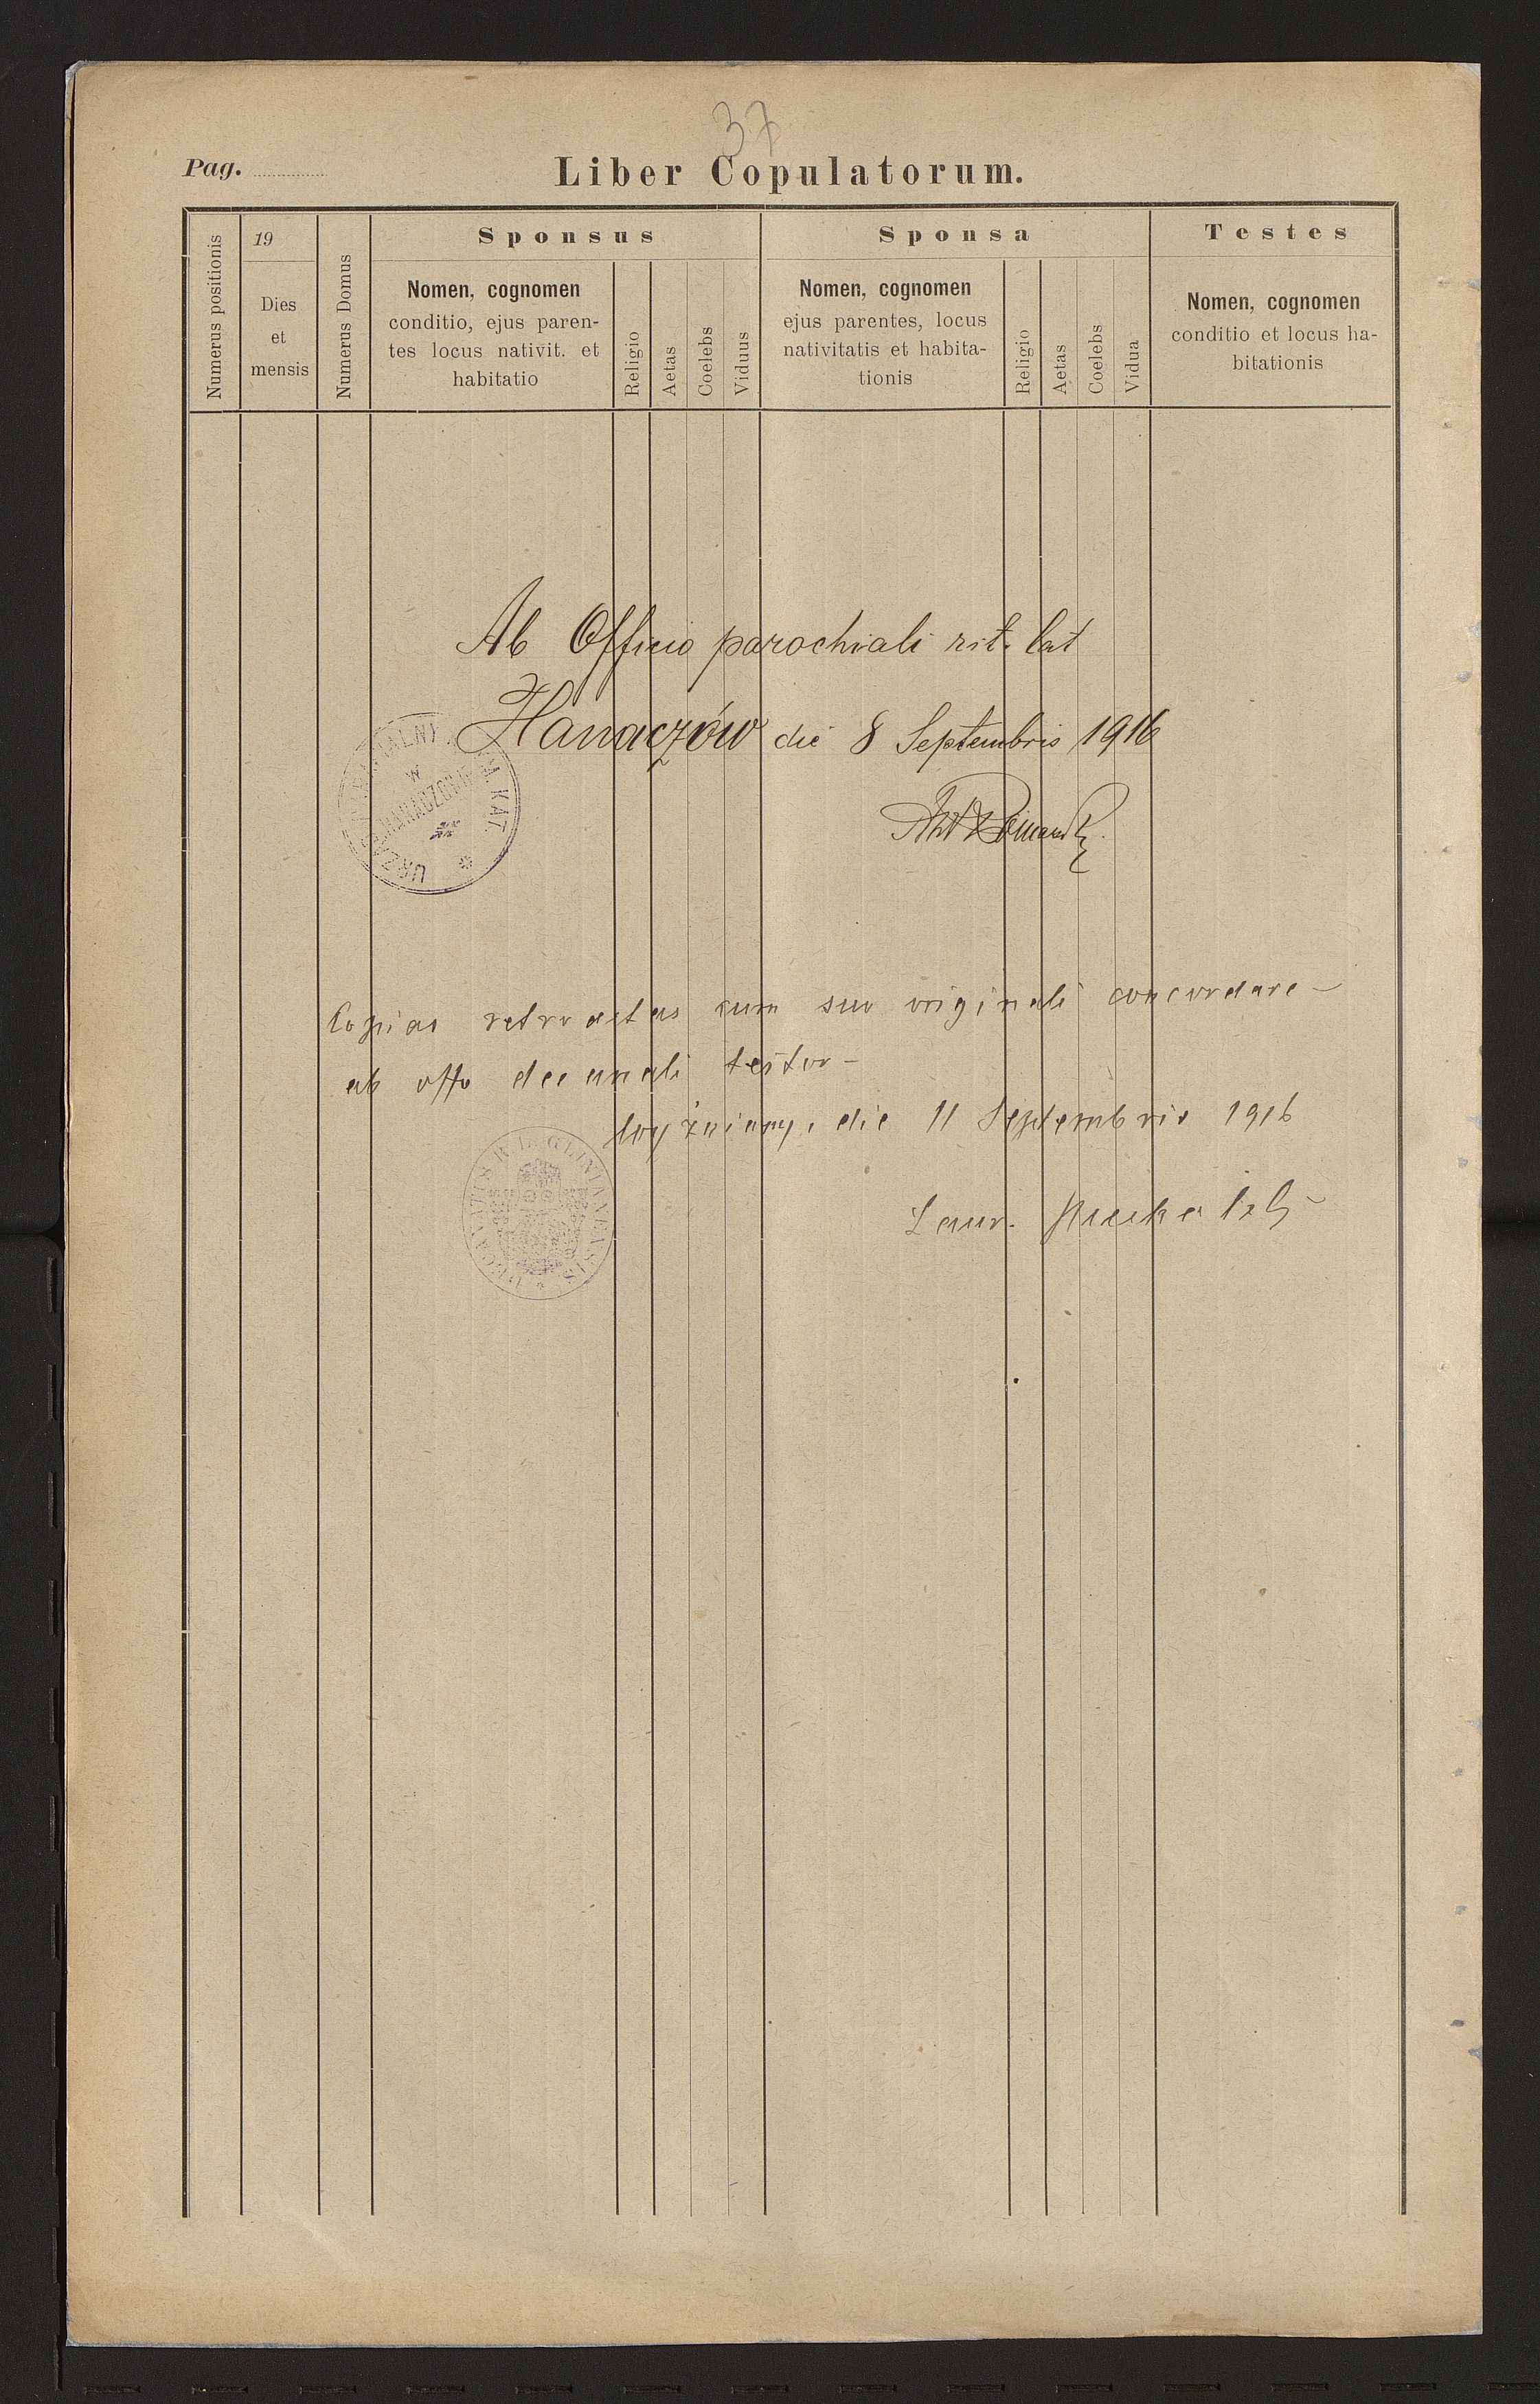 37
Pag.
Liber Copulatorum.
Numerus positionis
19
Dies
et
mensis
Numerus Domus
Sponsus
Nomen, cognomen
conditio, ejus paren-
tes locus nativit. et
habitatio
Religio
Aetas
Coelebs
Viduus
Sponsa
Nomen, cognomen
ejus parentes, locus
nativitatis et habita-
tionis
Religio
Aetas
Coelebs
Vidua
Testes
Nomen, cognomen
conditio et locus ha-
bitationis
Ab Officio parochiali rit. lat
Hanaczów die 8 Septembris 1916
W
HANACZOWIE
KAT.
Copias retroactas cum suo originali concordare —
ab offo decanali testor —
Wyżniany, die 11 Septembris 1916
DECANATUS R. L. GLINIANENSIS
Laur.